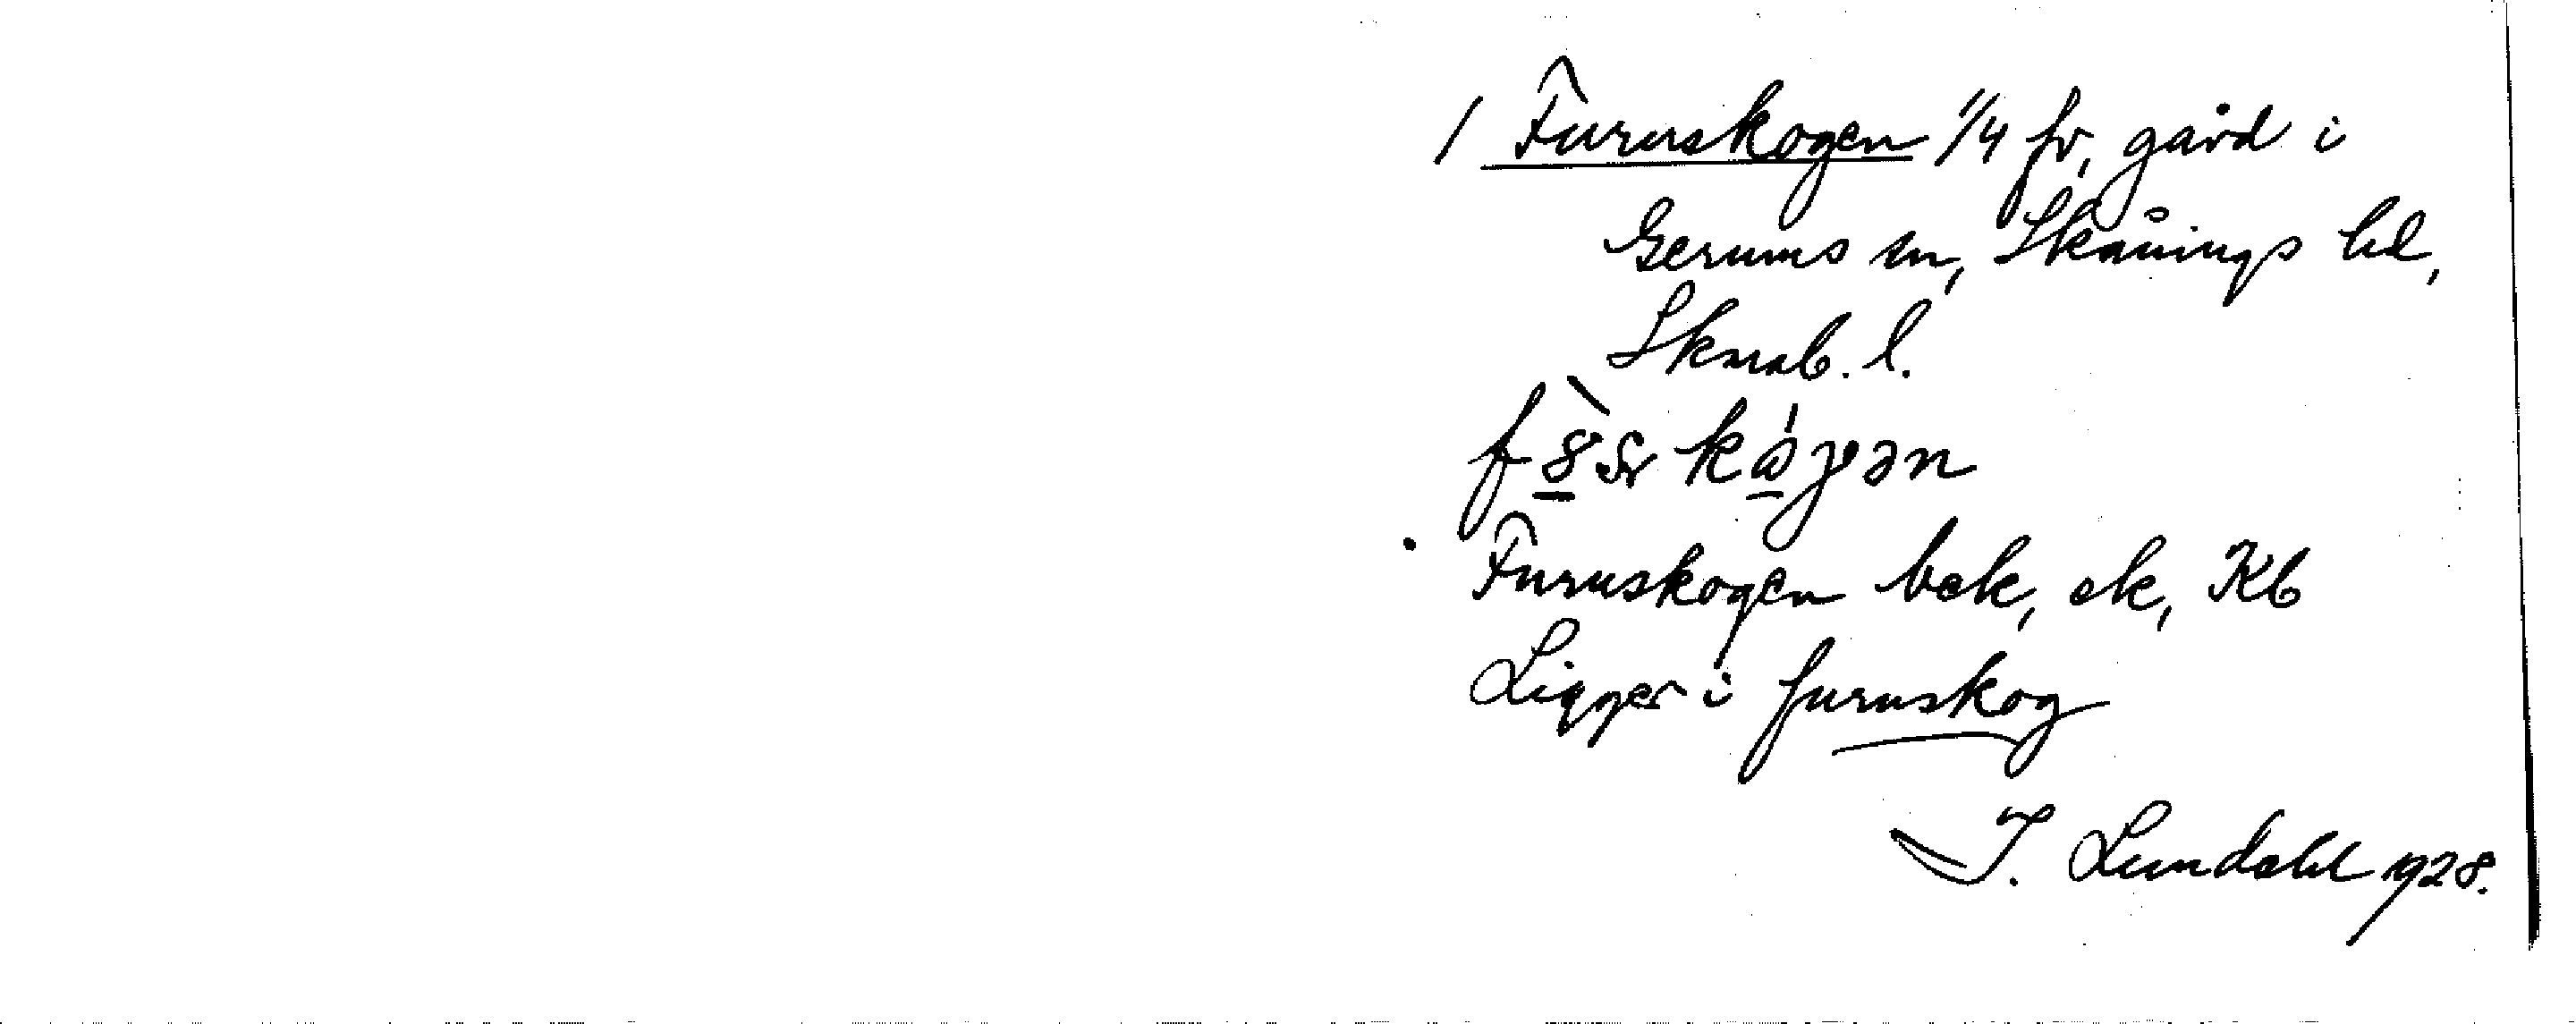 / Furuskogen 1/4 fr, gård i
Gerums sn, Skånings hd,
Skarab. l.
Furuskogen bek, ek, Kb
Ligger i furuskog
I. Lundahl 1928.